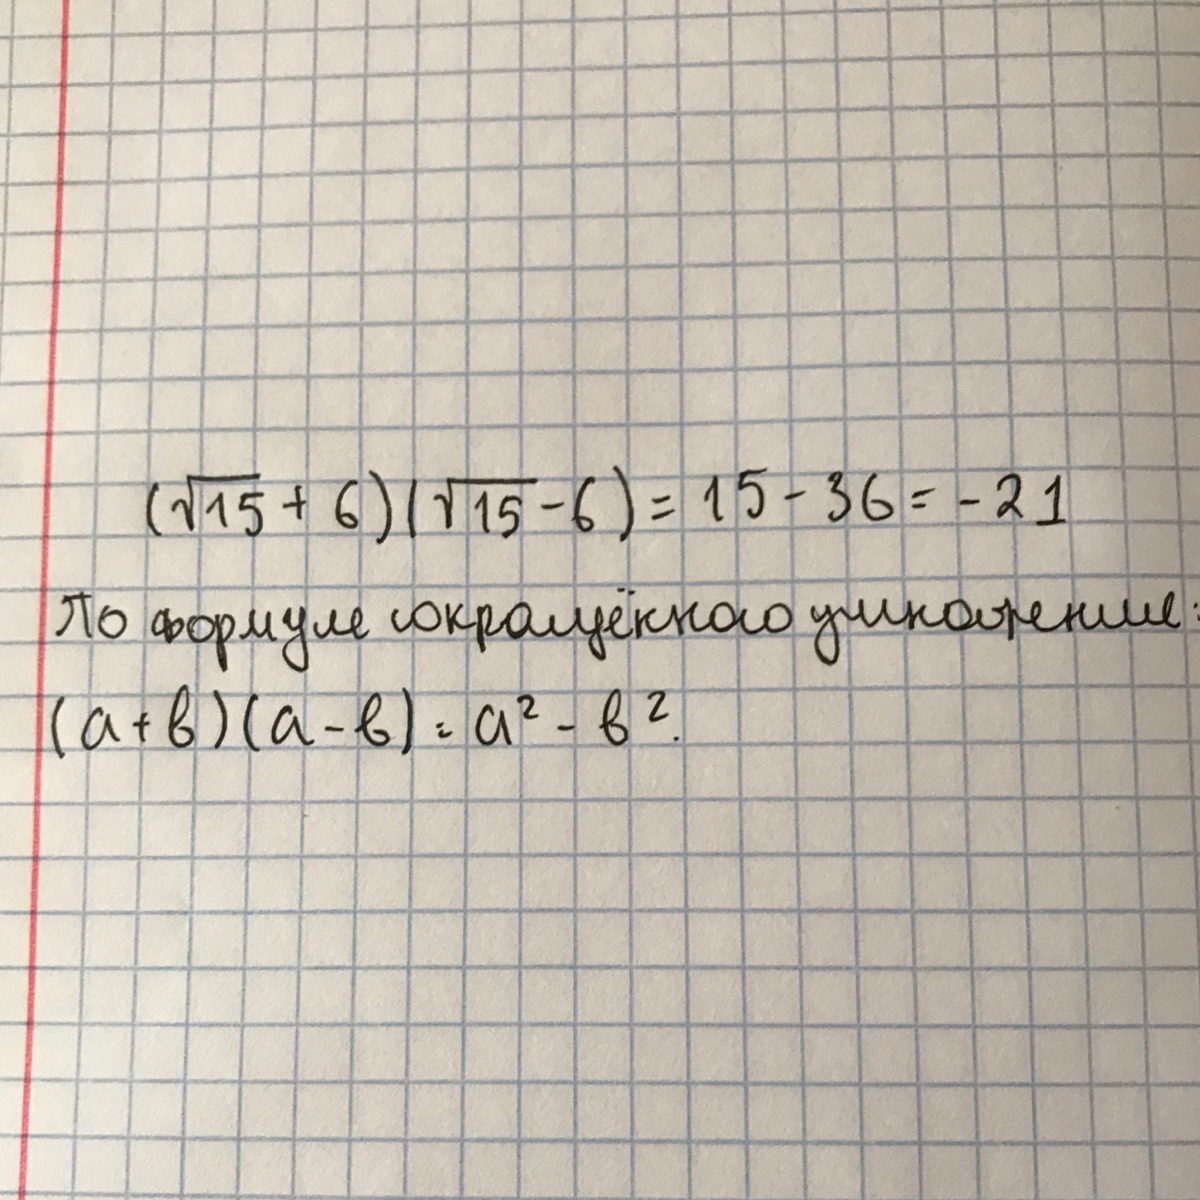 (√15 + 6)(√15 - 6) = 15 - 36 = - 21
По формуле сокращённого умножение:
(а + в)(а - в) = а² - в².